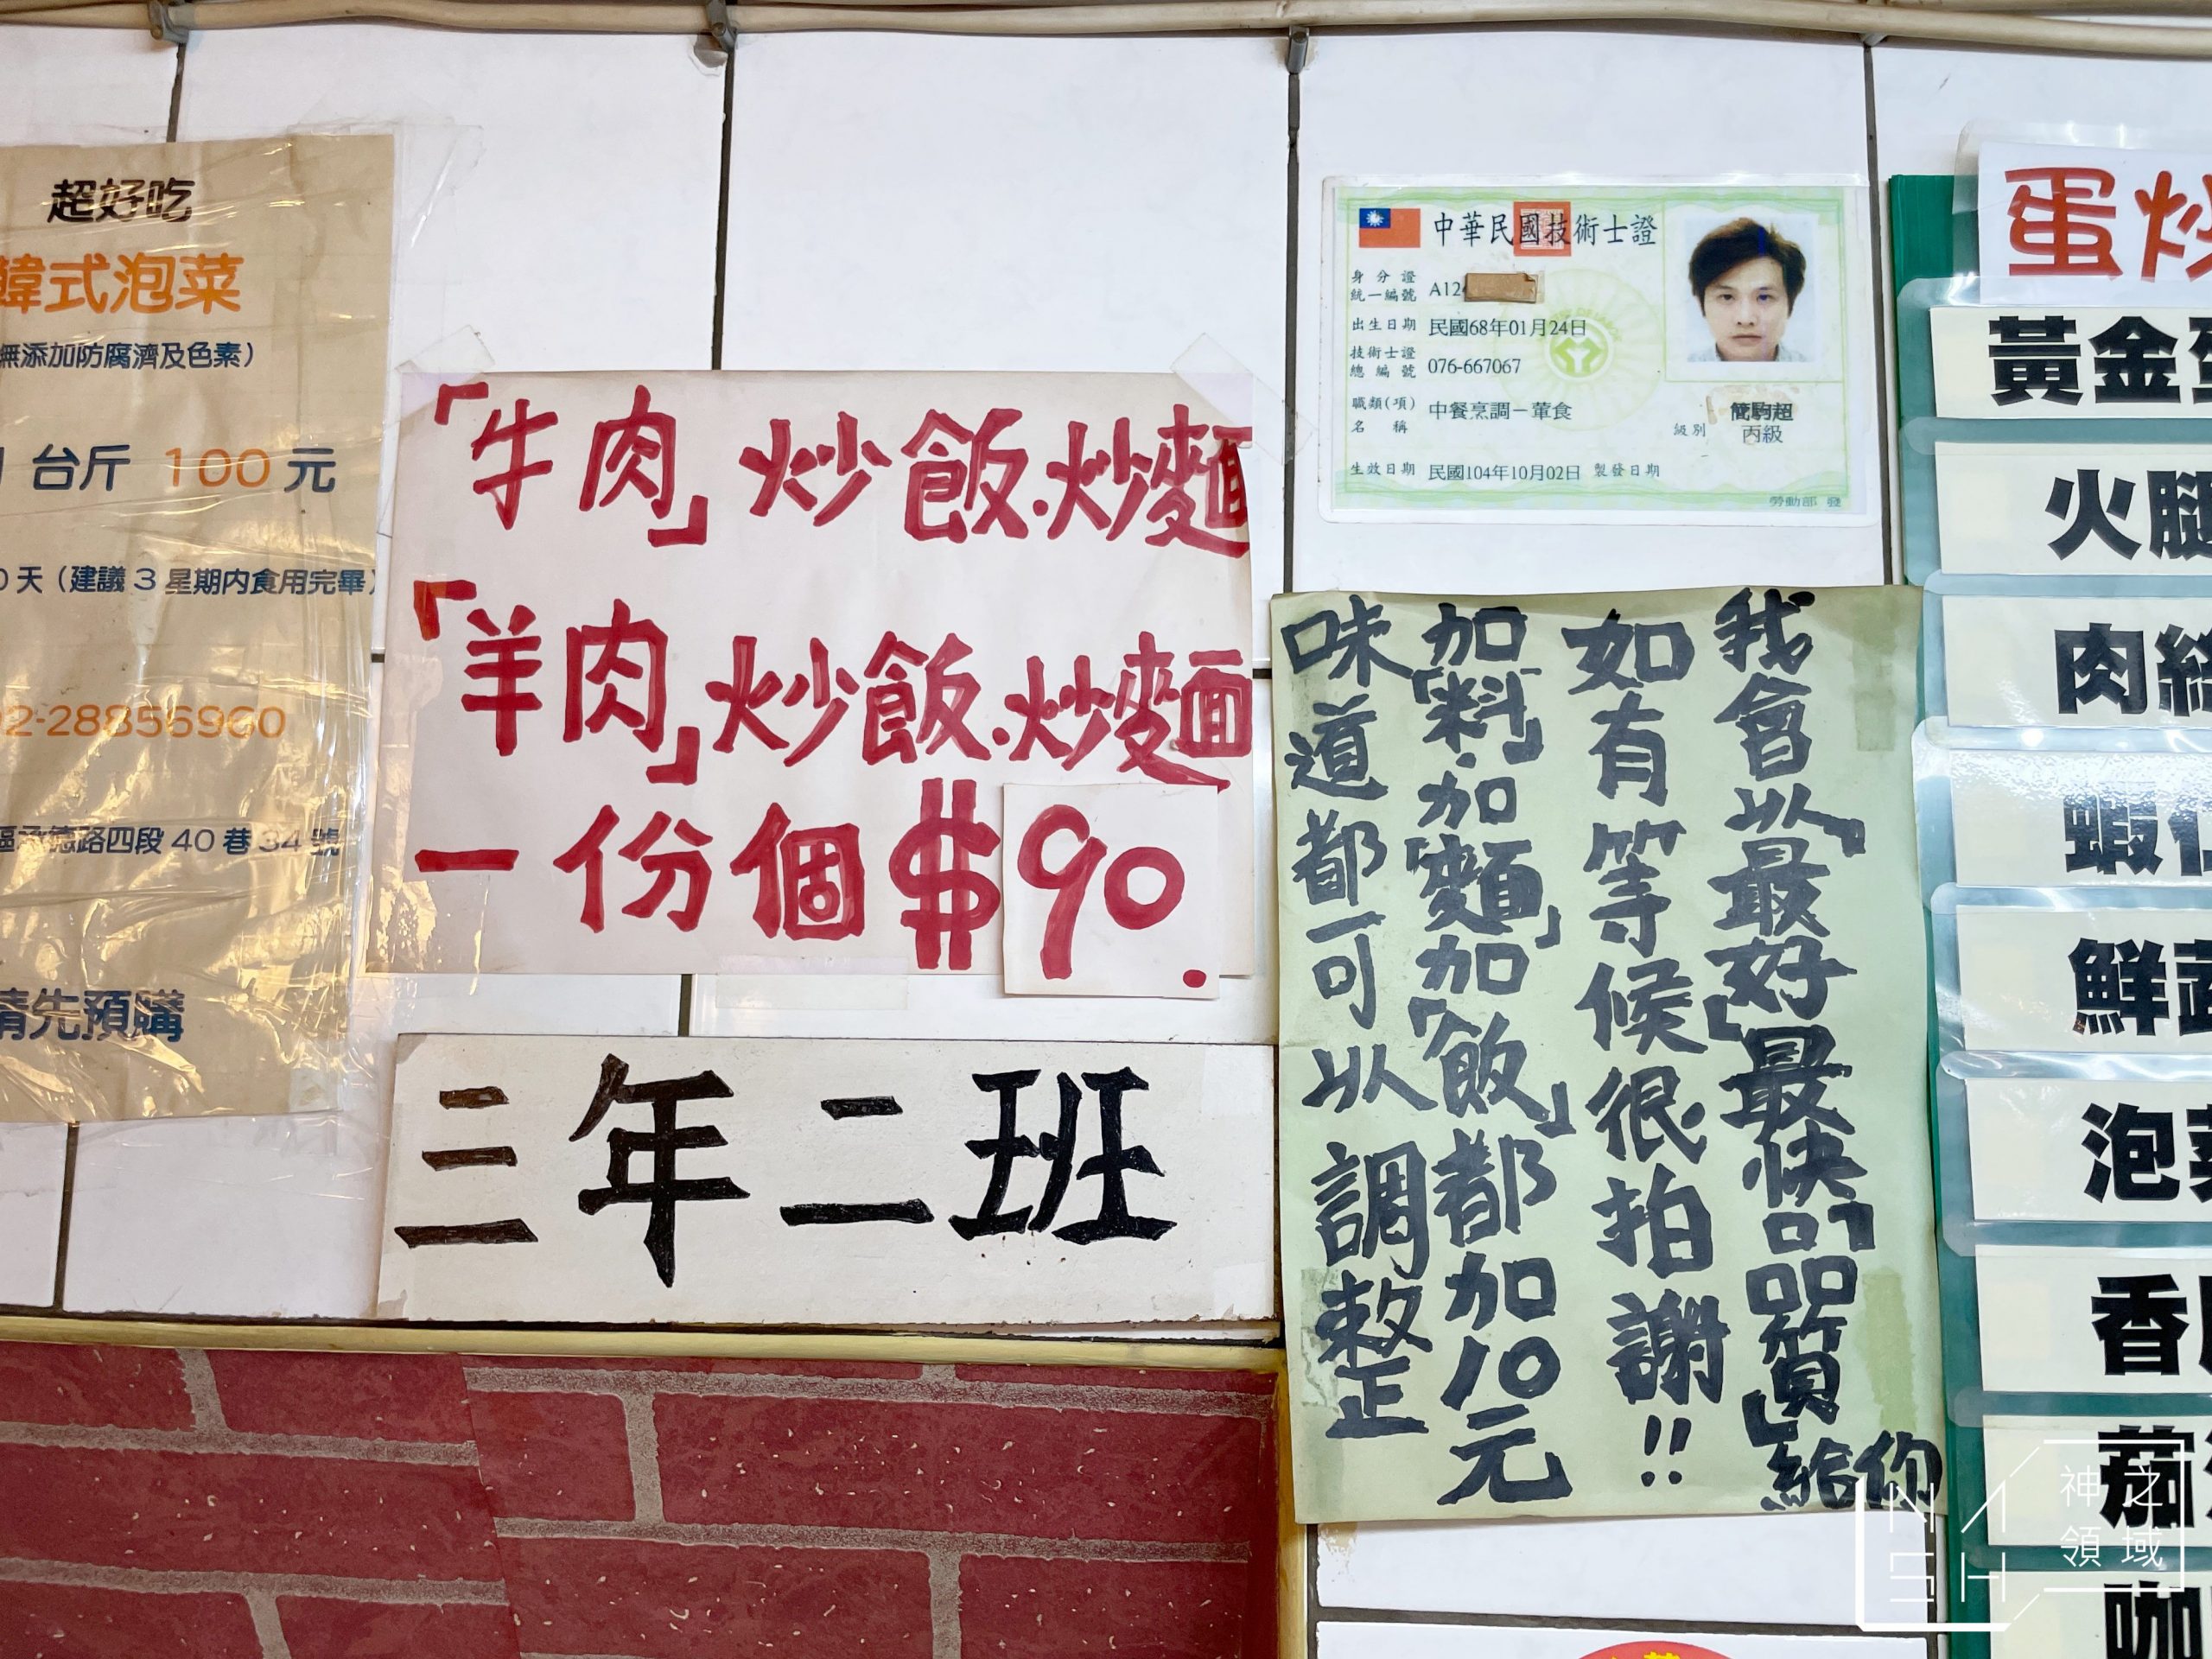 超好吃
韓式泡菜
無添加防腐濟及色素）
台斤 100 元
0天（建議3星期內食用完畢）
02-28856960
區承德路四段40巷34號
請先預購
「牛肉」炒飯.炒麵
「羊肉」炒飯.炒麵
一份個$90.
三年二班
中華民國技術士證
身分證
統一編號 A12
出生日期 民國68年01月24日
技術士證
總編號 076-667067
職類(項)
名稱 中餐烹調－葷食
簡駒超
級別 丙級
生效日期 民國104年10月02日 製發日期
勞動部 發
我會以「最好」最快「品質」給你
如有等候很拍謝!!
加「料」.加「麵」加「飯」都加10元
味道都可以調整
蛋炒
黃金蛋
火腿
肉絲
蝦仁
鮮蔬
泡菜
香
咖
NASH
神之
領域